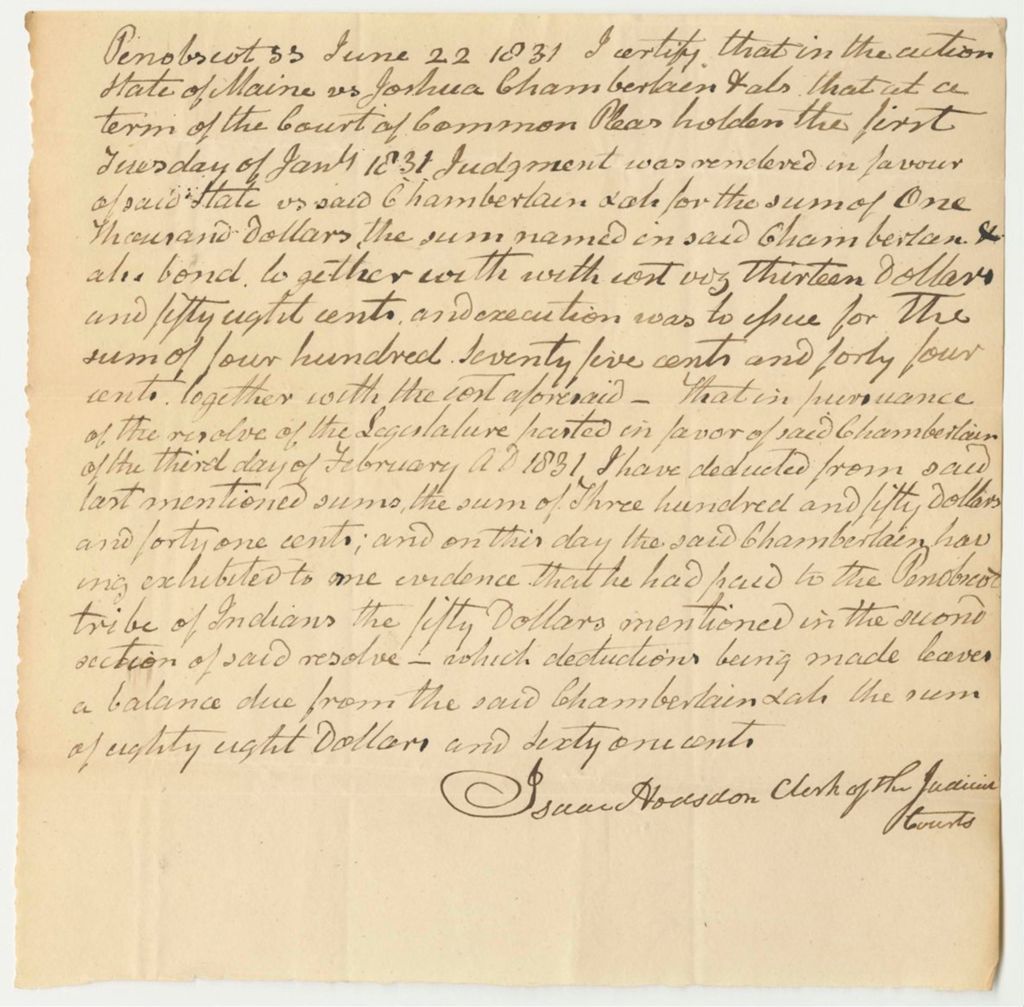 Penobscot SS June 22 1831 I certify that in the action
State of Maine vs Joshua Chamberlain & als that at a
term of the Court of Common Pleas holden the first
Tuesday of Jany 1831 Judgment was rendered in favour
of said State vs said Chamberlain & als for the sum of One
Thousand Dollars, the sum named in said Chamberlain &
als. bond. together with with cost viz thirteen Dollars
and fifty eight cents, and execution was to issue for The
sum of four hundred Seventy five cents and forty four
cents. together with the cost aforesaid – That in pursuance
of the resolve of the Legislature passed in favor of said Chamberlain
of the third day of February AD 1831 I have deducted from said
last mentioned sums, the sum of Three hundred and fifty Dollars
and forty one cents; and on this day the said Chamberlain hav
ing exhibited to me evidence that he had paid to the Penobscot
tribe of Indians the fifty Dollars mentioned in the second
section of said resolve – which deductions being made leaves
a balance due from the said Chamberlain & als the sum
of eighty eight Dollars and sixty one cents
Isaac Hodsdon Clerk of the Judicial
Courts